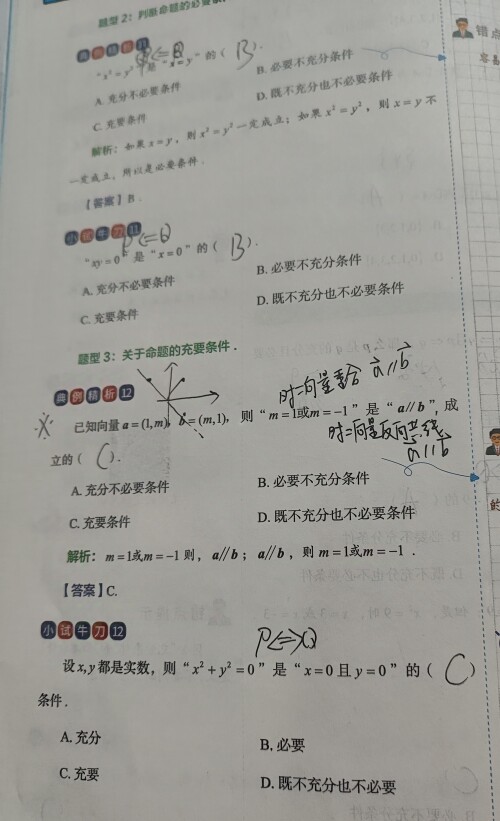 题型2：判断命题的必要条
典例精析11
P<=Q
“x²=y²”是“x=y”的（ B ）.
A. 充分不必要条件
B. 必要不充分条件
C. 充要条件
D. 既不充分也不必要条件
解析：如果x=y，则x²=y²一定成立；如果x²=y²，则x=y不
一定成立，所以是必要条件.
【答案】B.
小试牛刀11
P<=Q
“xy=0”是“x=0”的（ B ）.
A. 充分不必要条件
B. 必要不充分条件
C. 充要条件
D. 既不充分也不必要条件
题型3：关于命题的充要条件.
典例精析12
时二向量重合 a∥b
已知向量a=(1,m)，b=(m,1)，则“m=1或m=-1”是“a∥b”，成
时二向量反向共线
a∥b
立的（ C ）.
A. 充分不必要条件
B. 必要不充分条件
C. 充要条件
D. 既不充分也不必要条件
解析：m=1或m=-1则，a∥b；a∥b，则m=1或m=-1.
【答案】C.
小试牛刀12
P<=>Q
设x,y都是实数，则“x²+y²=0”是“x=0且y=0”的（ C ）
条件.
A. 充分
B. 必要
C. 充要
D. 既不充分也不必要
错点
容易
的